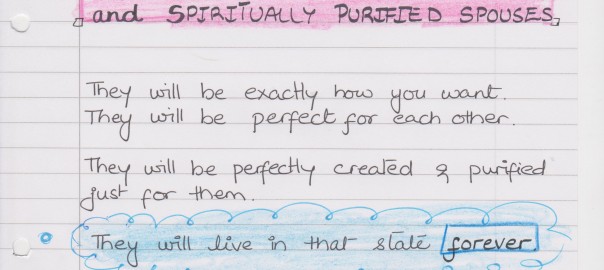 and SPIRITUALLY PURIFIED SPOUSES,
They will be exactly how you want.
They will be perfect for each other.
They will be perfectly created & purified
just for them.
They will live in that state forever.